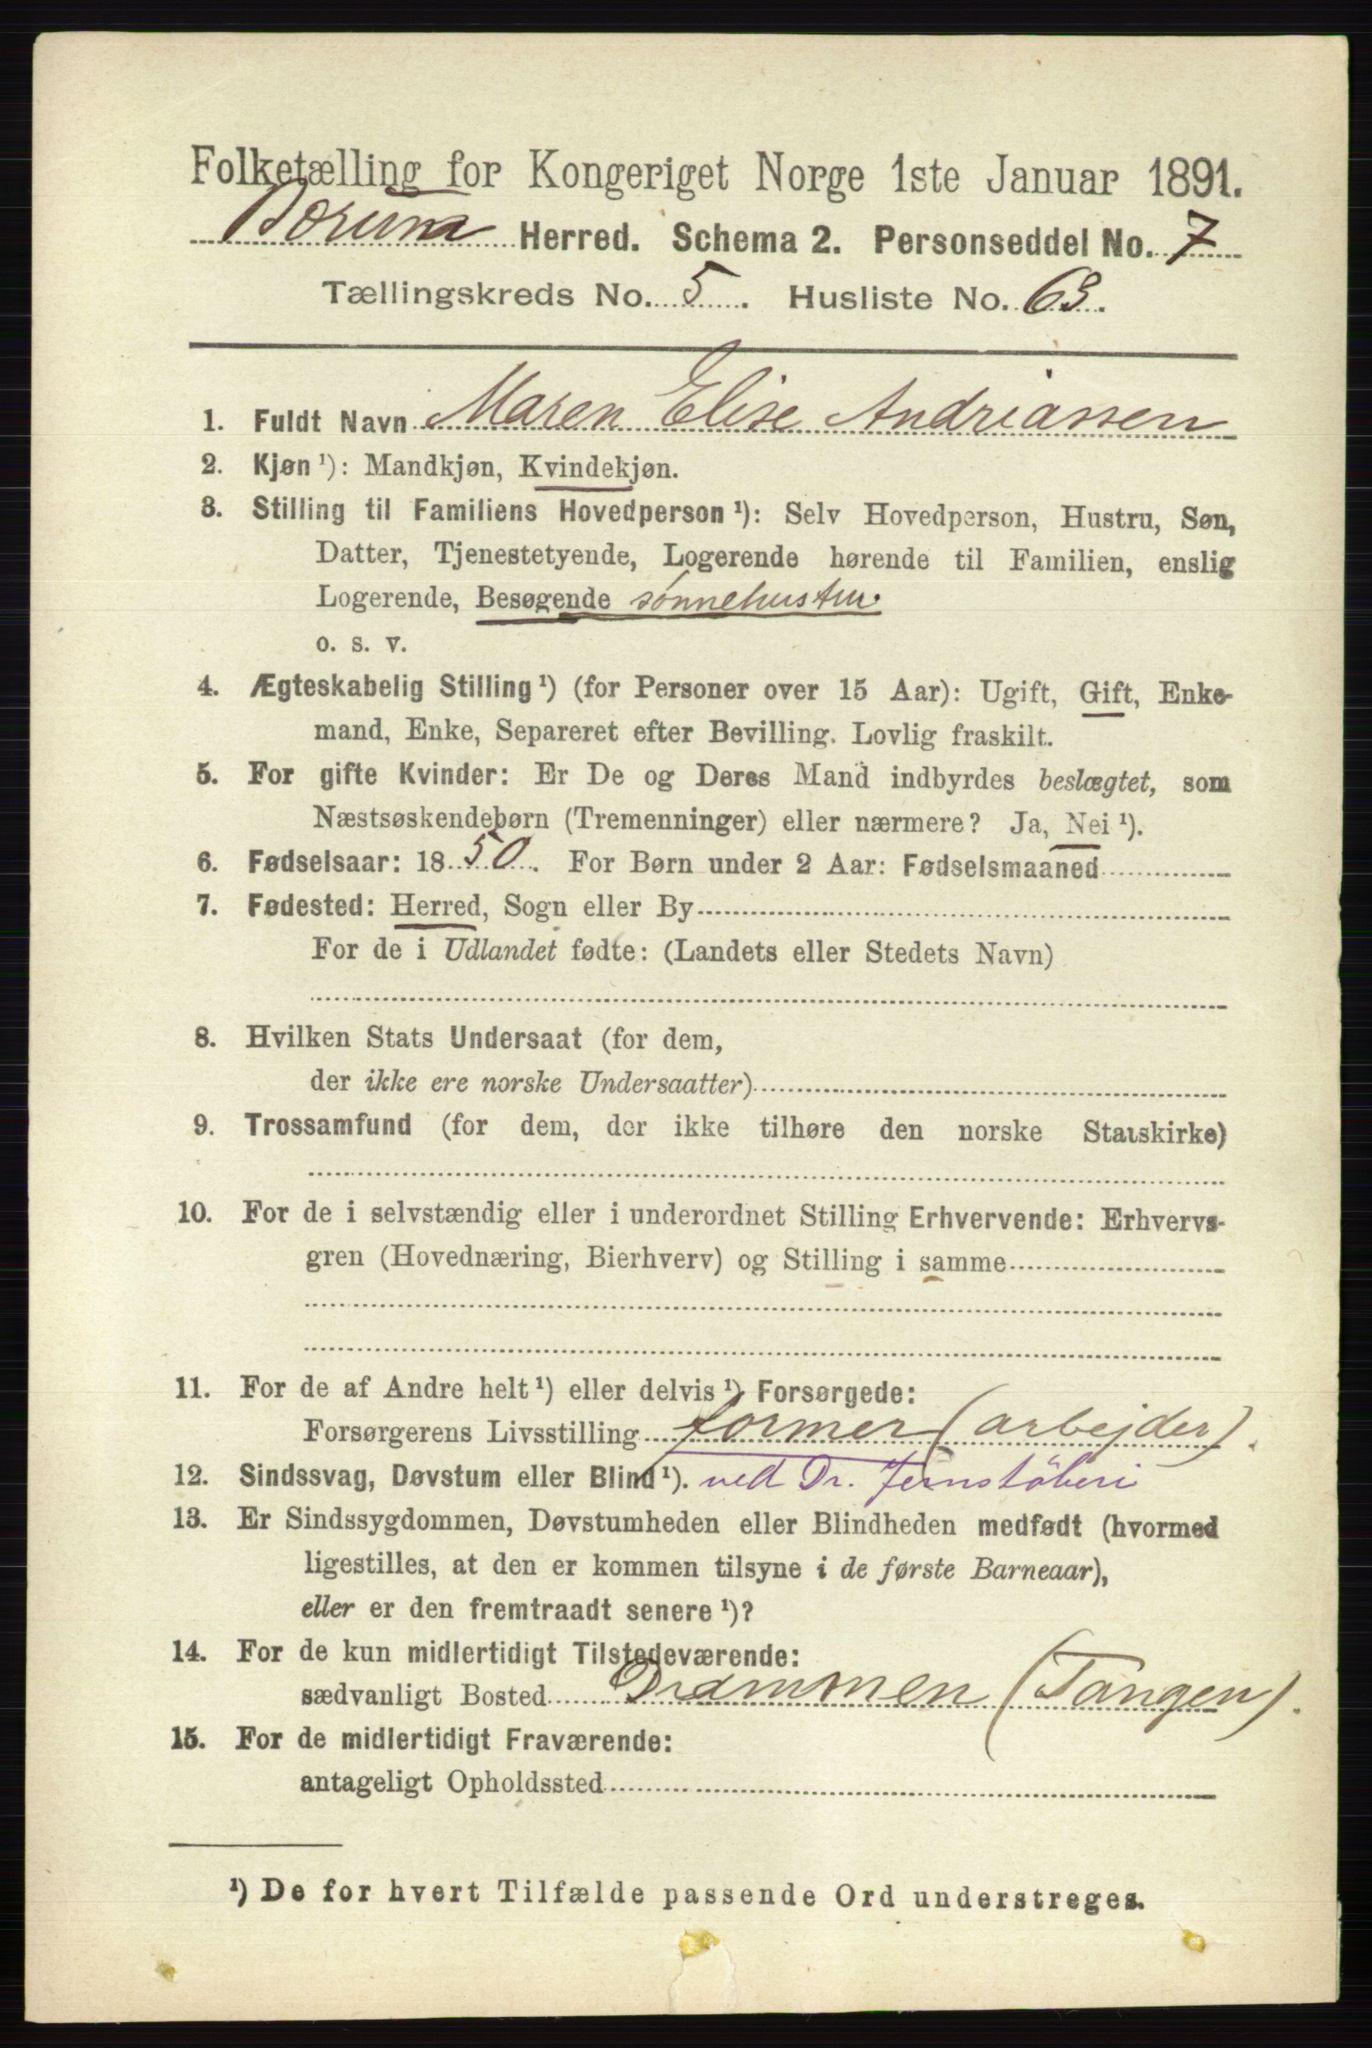 Folketælling for Kongeriget Norge 1ste Januar 1891.
Bærum Herred. Schema 2. Personseddel No. 7
Tællingskreds No. 5. Husliste No. 63.
1. Fuldt Navn Maren Elise Andriassen
2. Kjøn ¹): Mandkjøn, Kvindekjøn.
3. Stilling til Familiens Hovedperson ¹): Selv Hovedperson, Hustru, Søn,
Datter, Tjenestetyende, Logerende hørende til Familien, enslig
Logerende, Besøgende sønnehustru
o. s. v.
4. Ægteskabelig Stilling ¹) (for Personer over 15 Aar): Ugift, Gift, Enke-
mand, Enke, Separeret efter Bevilling. Lovlig fraskilt.
5. For gifte Kvinder: Er De og Deres Mand indbyrdes beslægtet, som
Næstsøskendebørn (Tremenninger) eller nærmere? Ja, Nei ¹).
6. Fødselsaar: 1850. For Børn under 2 Aar: Fødselsmaaned
7. Fødested: Herred, Sogn eller By
For de i Udlandet fødte: (Landets eller Stedets Navn)
8. Hvilken Stats Undersaat (for dem,
der ikke ere norske Undersaatter)
9. Trossamfund (for dem, der ikke tilhøre den norske Statskirke)
10. For de i selvstændig eller i underordnet Stilling Erhvervende: Erhvervs-
gren (Hovednæring, Bierhverv) og Stilling i samme
11. For de af Andre helt ¹) eller delvis ¹) Forsørgede:
Forsørgerens Livsstilling former (arbejder).
12. Sindssvag, Døvstum eller Blind ¹). ved Dr. Jernstøberi
13. Er Sindssygdommen, Døvstumheden eller Blindheden medfødt (hvormed
ligestilles, at den er kommen tilsyne i de første Barneaar),
eller er den fremtraadt senere ¹)?
14. For de kun midlertidigt Tilstedeværende:
sædvanligt Bosted Drammen (Tangen).
15. For de midlertidigt Fraværende:
antageligt Opholdssted
¹) De for hvert Tilfælde passende Ord understreges.